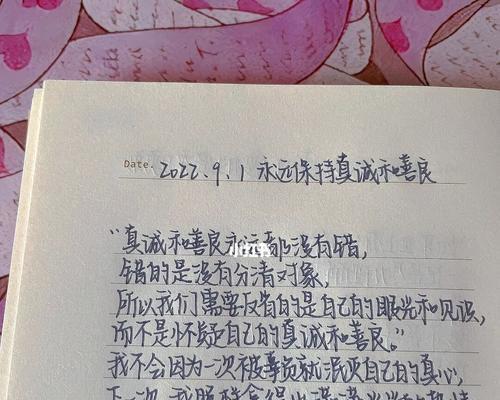 Date. 2022.9.1 永远保持真诚和善良
“真诚和善良永远都没有错,
错的是没有分清对象,
所以我们需要反省的是自己的眼光和见识,
而不是怀疑自己的真诚和善良。”
我不会因为一次被辜负就泯灭自己的真心,
下一次,我
小红书